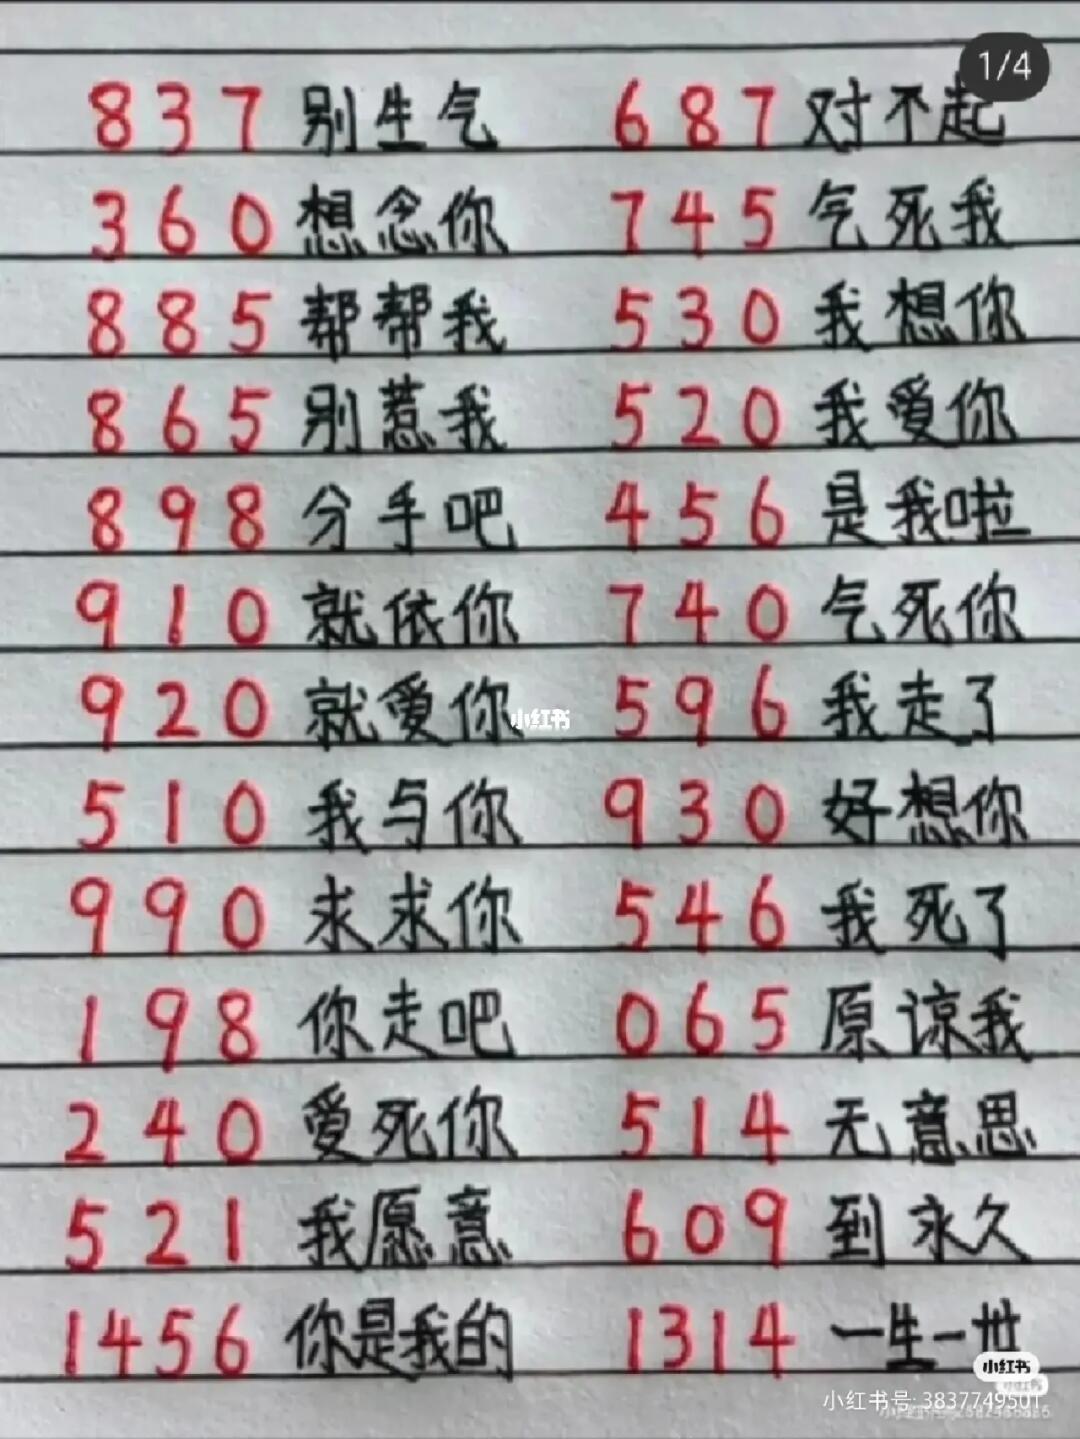 1/4
837 别生气 687 对不起
360 想念你 745 气死我
885 帮帮我 530 我想你
865 别惹我 520 我爱你
898 分手吧 456 是我啦
910 就依你 740 气死你
920 就爱你 596 我走了
小红书
510 我与你 930 好想你
990 求求你 546 我死了
198 你走吧 065 原谅我
240 爱死你 514 无意思
521 我愿意 609 到永久
1456 你是我的 1314 一生一世
小红书
小红书
小红书号: 3837749501